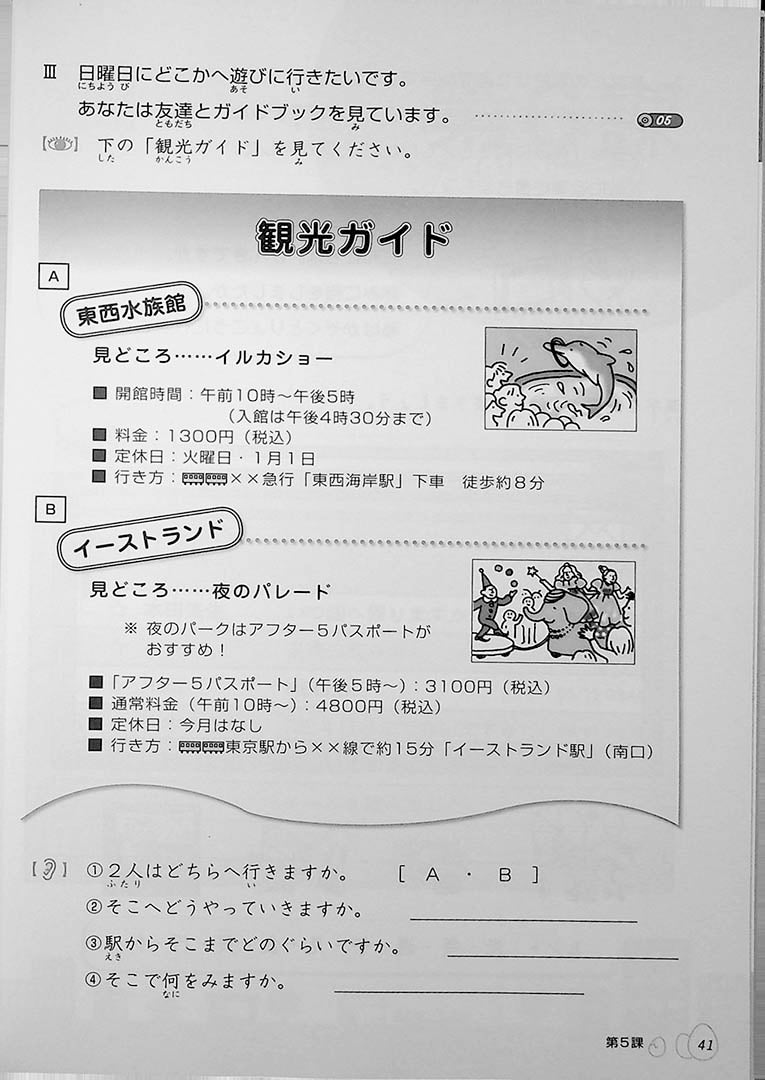 Ⅲ 日曜日にどこかへ遊びに行きたいです。
にちよう び あそ い
あなたは友達とガイドブックを見ています。 ……………………………… 05
ともだち み
【 】 下の「観光ガイド」を見てください。
した かんこう み
観光ガイド
A
東西水族館
見どころ……イルカショー
■ 開館時間：午前10時～午後5時
（入館は午後4時30分まで）
■ 料金：1300円（税込）
■ 定休日：火曜日・1月1日
■ 行き方：××急行「東西海岸駅」下車 徒歩約8分
B
イーストランド
見どころ……夜のパレード
※ 夜のパークはアフター5パスポートが
おすすめ！
■「アフター5パスポート」（午後5時～）：3100円（税込）
■ 通常料金（午前10時～）：4800円（税込）
■ 定休日：今月はなし
■ 行き方：東京駅から××線で約15分「イーストランド駅」（南口）
【 】 ①2人はどちらへ行きますか。 [ A ・ B ]
ふたり い
②そこへどうやっていきますか。
③駅からそこまでどのぐらいですか。
えき
④そこで何をみますか。
なに
第5課 41